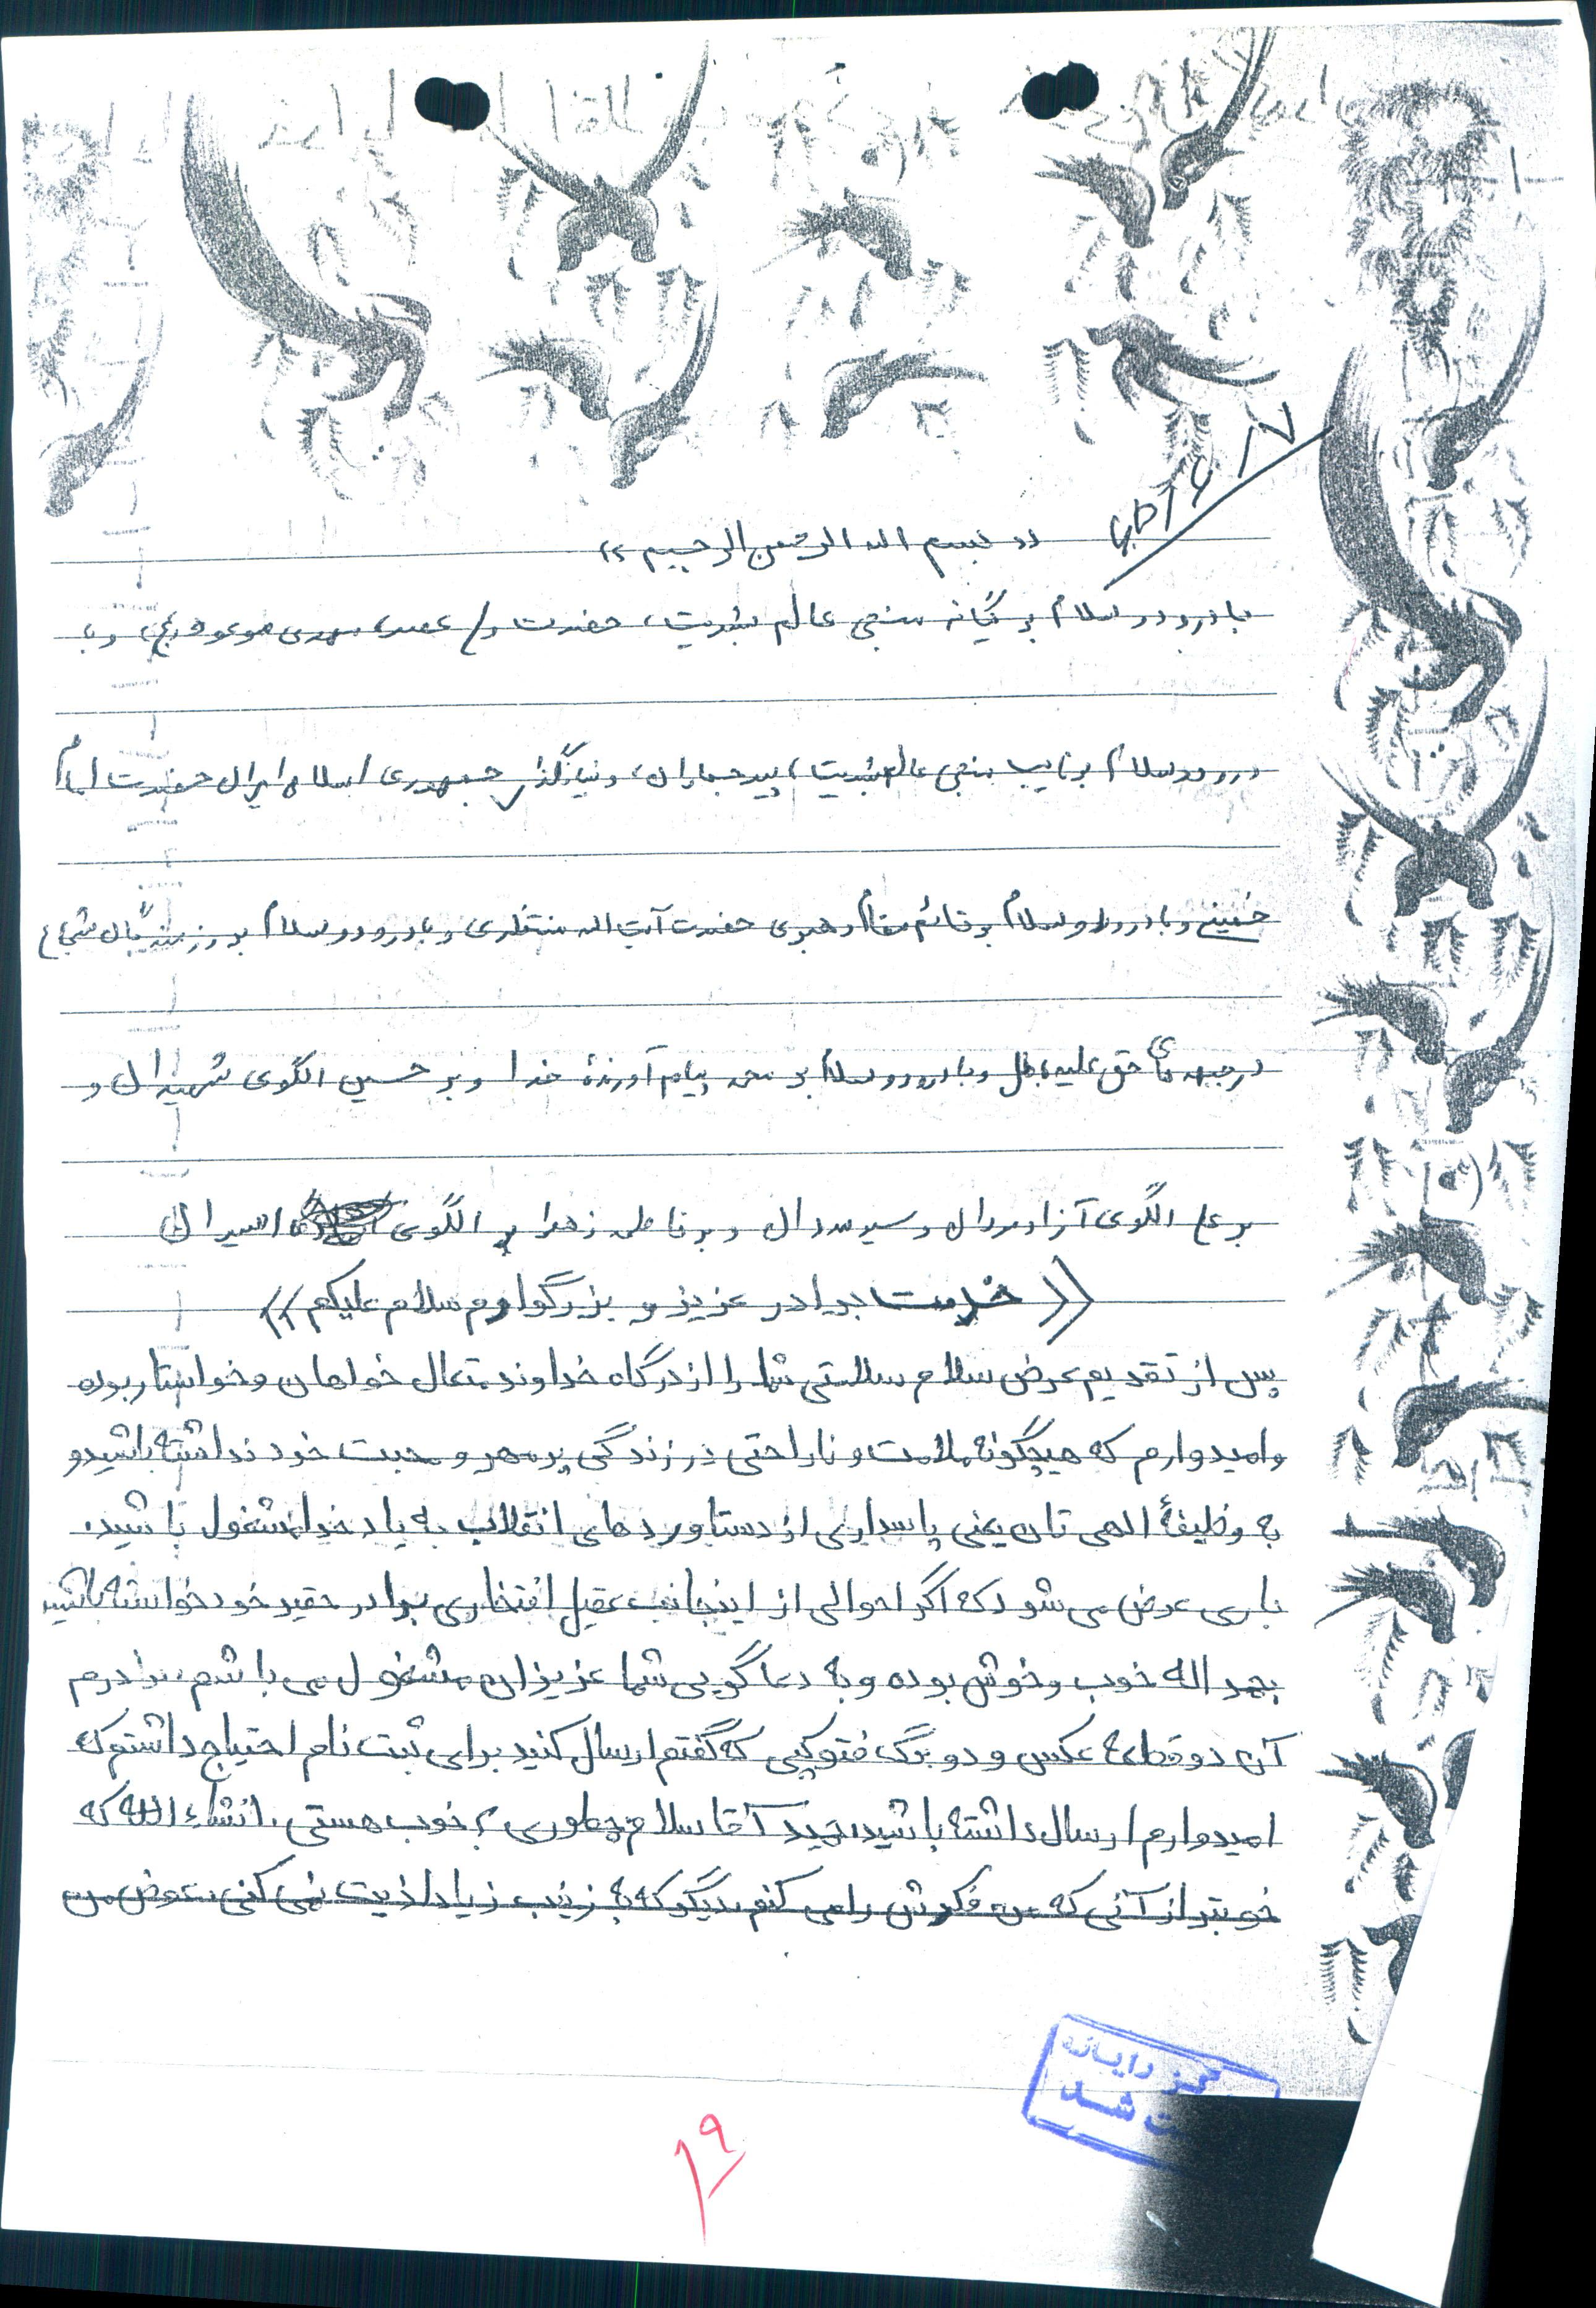 «بسم اله الرحمن الرحیم»
با درود و سلام بر یگانه منجی عالم بشریت، حضرت ولی عصر، مهدی موعود (عج) و با
درود و سلام بر نایب منجی عالم بشریت، پیر جماران، و بنیانگذار جمهوری اسلامی ایران حضرت امام
خمینی و با درود و سلام بر قائم مقام رهبری حضرت آیت اله منتظری و با درود و سلام بر رزمندگان شجاع
در جبهه های حق علیه باطل و با درود و سلام بر محمد پیام آورندۀ خدا و بر حسین الگوی شهیدان و
بر علی الگوی آزادمردان و سیر مردان و بر فاطمه زهرا بر الگوی اسیران
«خدمت برادر عزیز و بزرگوارم سلام علیکم»
پس از تقدیم عرض سلام سلامتی شما را از درگاه خداوند متعال خواهان و خواستار بوده
و امیدوارم که هیچگونه ملامت و ناراحتی در زندگی پر مهر و محبت خود نداشته باشید و
به وظیفۀ الهی تان یعنی پاسداری از دستاوردهای انقلاب به یاد خدا مشغول باشید.
باری عرض می شود که اگر احوالی از اینجانب عقیل افتخاری برادر حقیر خود خواسته باشید
بحمد اله خوب و خوش بوده و به دعا گویی شما عزیزان مشغول می باشم. برادرم
آن دو قطعه عکس و دو برگ فتوکپی که گفتم ارسال کنید برای ثبت نام احتیاج داشتم که
امیدوارم ارسال داشته باشید. آقا سلام چطوری؟ خوب هستی. انشاء الله که
خوبتر از آنی که من فکرش را می کنم. دیگو که به زینب زیاد اذیت نمی کنی. عوض من
۱۹
رایانه
شد